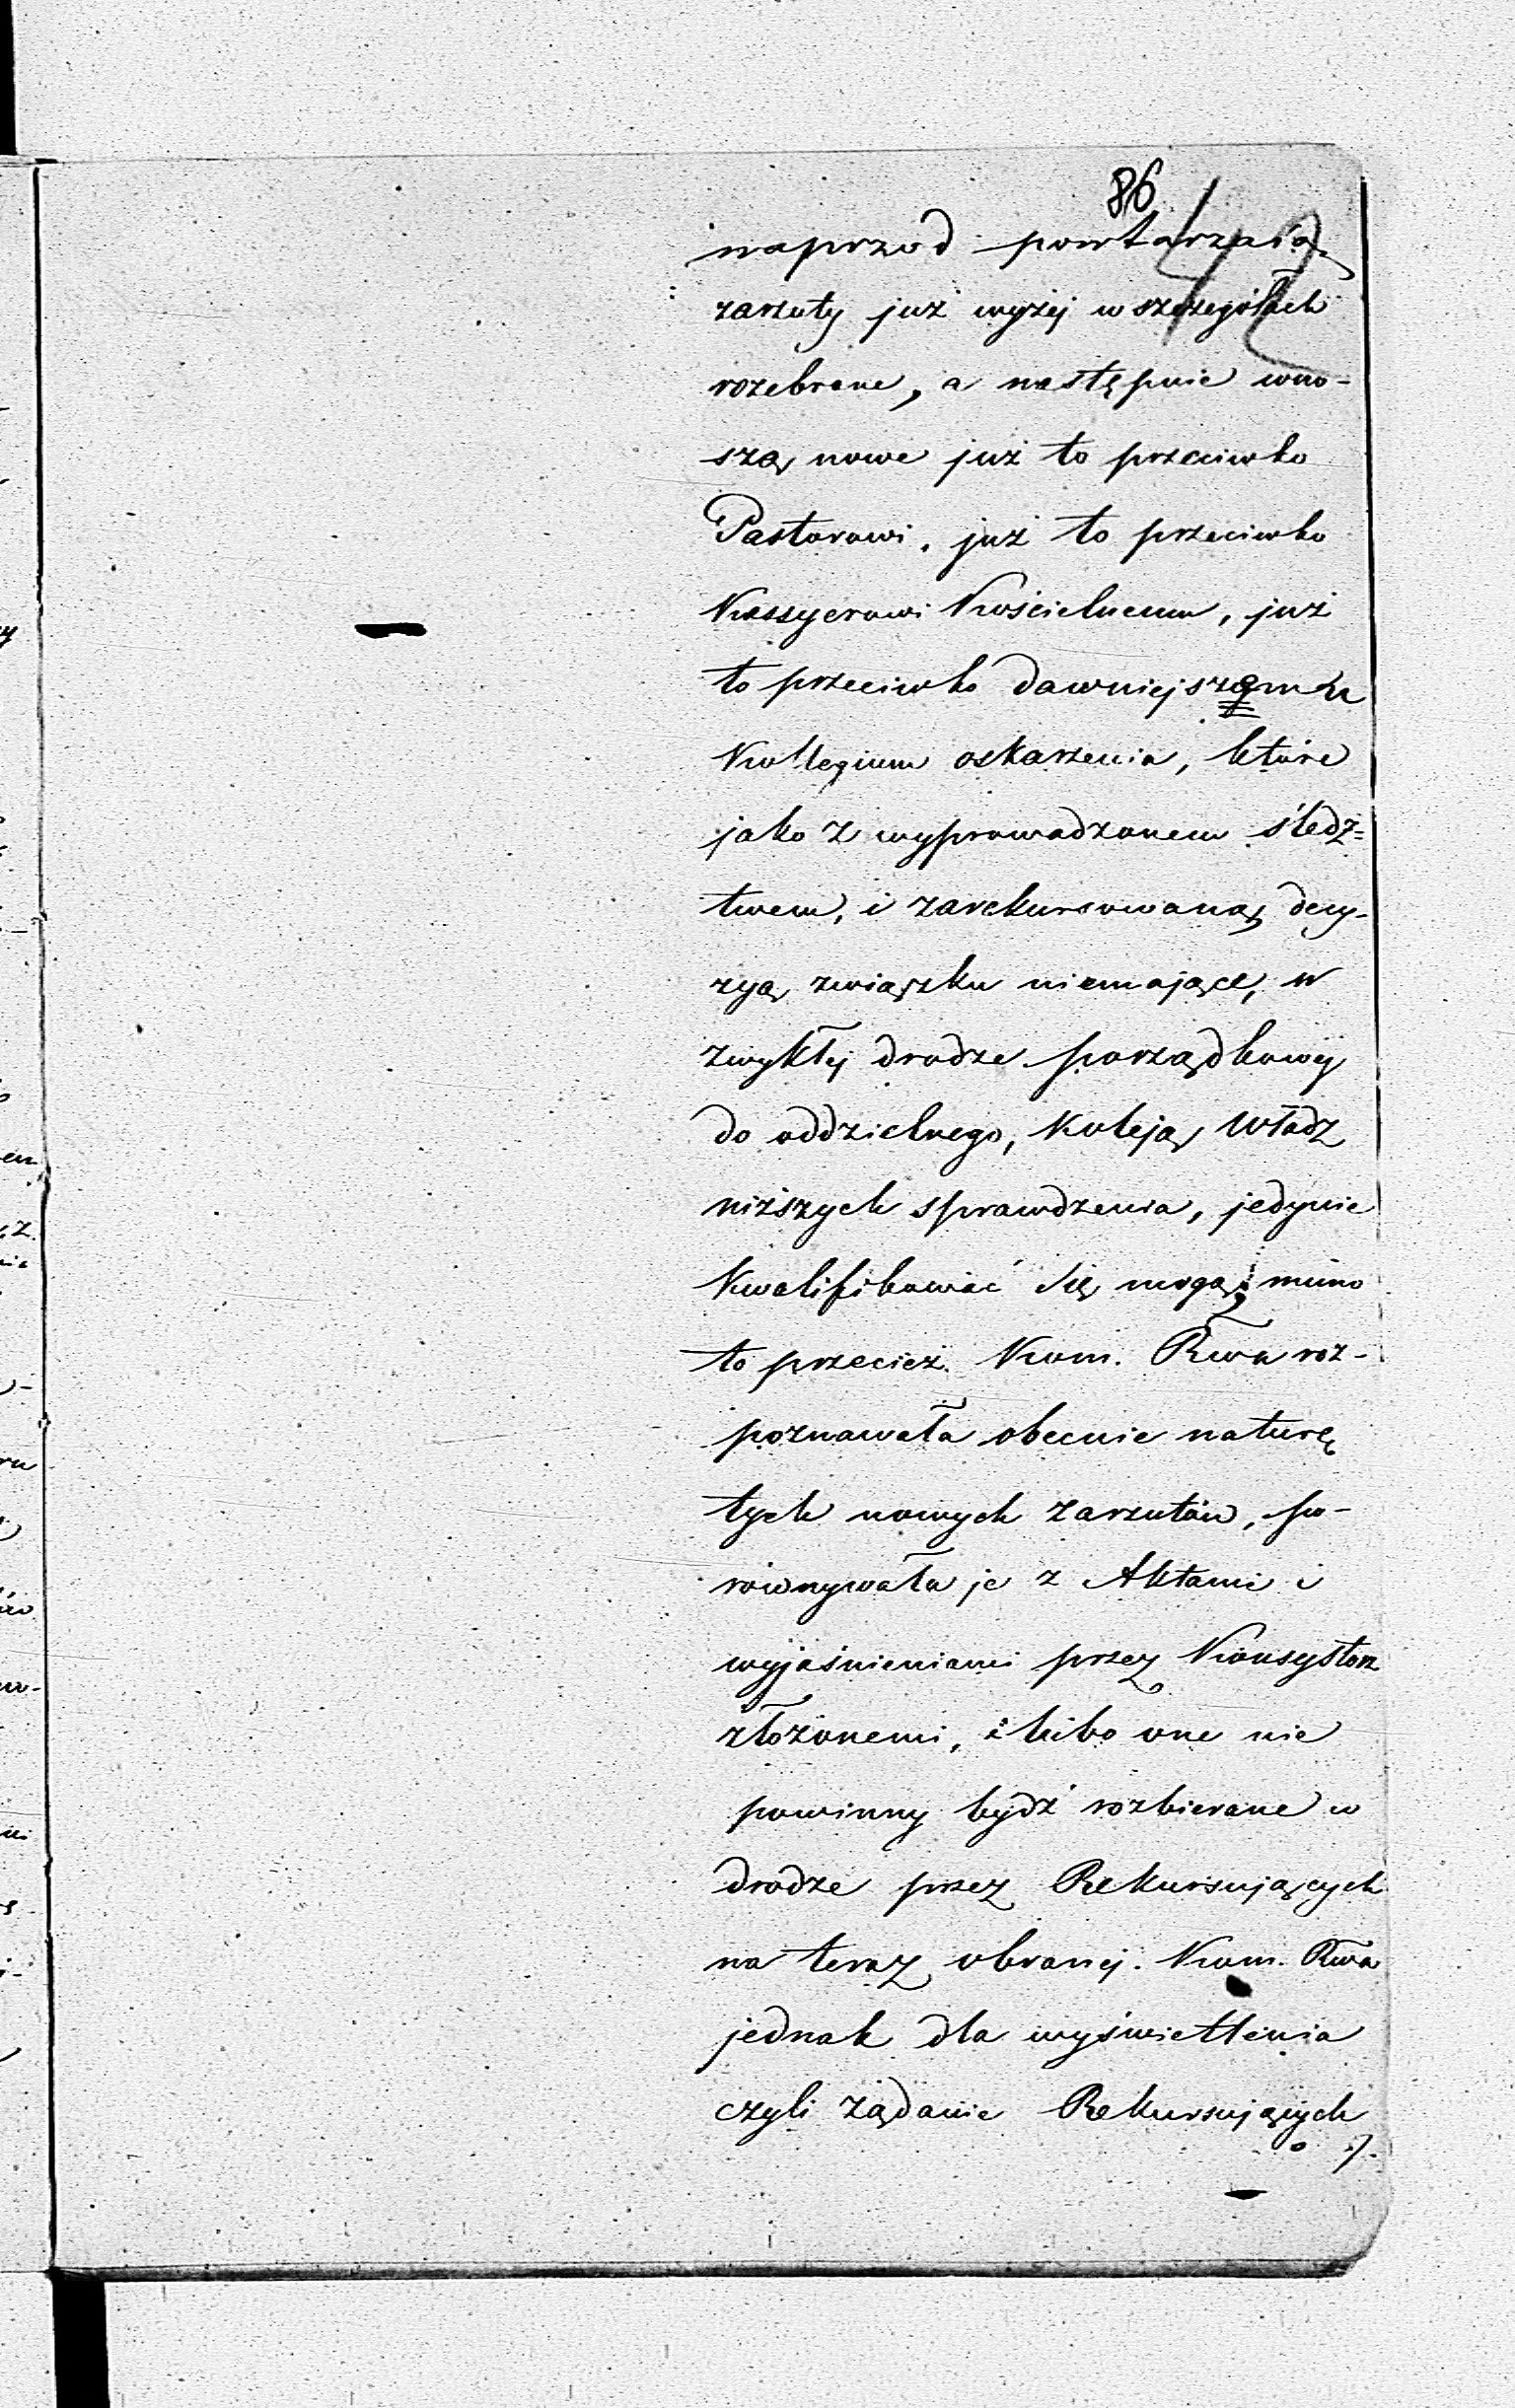 86
42
naprzod powtarzaią
zarzuty już wyżej w szczegółach
rozebrane, a następnie wno-
szą nowe już to przeciwko
Pastorowi, już to przeciwko
Kassyerowi Kościelnemu, już
to przeciwko dawniejszemu
Kollegium oskarzenia, które
jako z wyprowadzonem śledz=
twem, i zarekursowaną decy-
zyą związku niemające, w
zwykłej drodze porządkowej
do oddzielnego, Koleją Władz
niższych sprawdzenia, jedynie
Kwalifikować się mogą; mimo
to przecież Kom. Rwa roz-
poznawała obecnie naturę
tych nowych zarzutów, po-
równywała je z Aktami i
wyjaśnieniami przez Konsystorz
złożonemi, i lubo one nie
powinny bydź rozbierane w
drodze przez Rekursujących
na teraz obranej. Kom. Rwa
jednak dla wyświetlenia
czyli żądanie Rekursujących